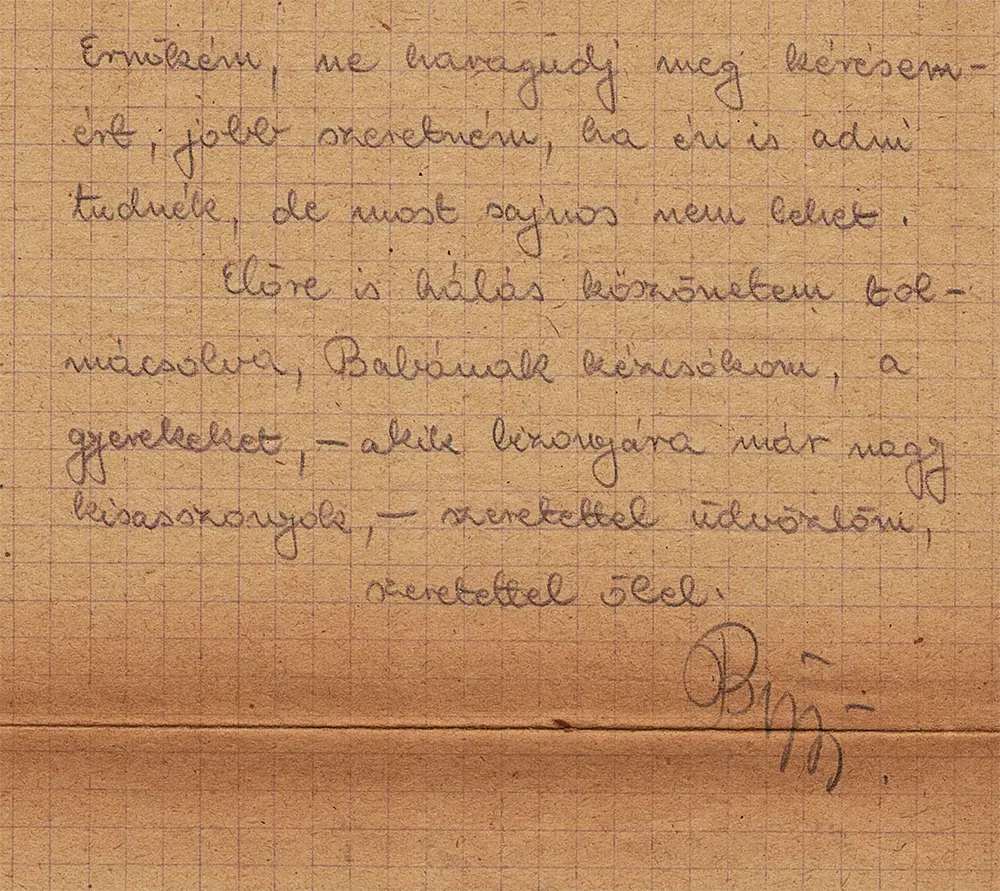 Ernőkém, ne haragudj meg kérésem-
ért, jobb szeretném, ha én is adni
tudnék, de most sajnos nem lehet.
Előre is hálás köszönetem tol-
mácsolva, Babának kézcsókom, a
gyerekeket, – akik bizonyára már nagy
kisasszonyok, – szeretettel üdvözlöm,
szeretettel ölel.